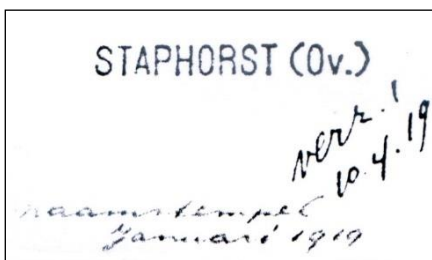 STAPHORST (Ov.)
verz.!
10.4.19
naamstempel
Januari 1919